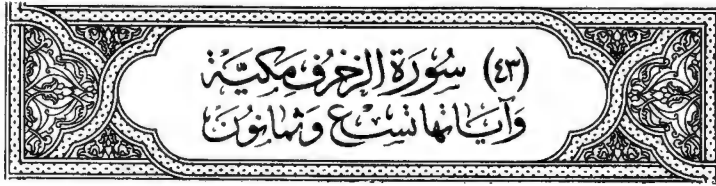 (٤٣) سُورَةُ الزُّخْرُفِ مَكِيَّةٌ
وَآيَاتُهَا تِسْعٌ وَثَمَانُونَ